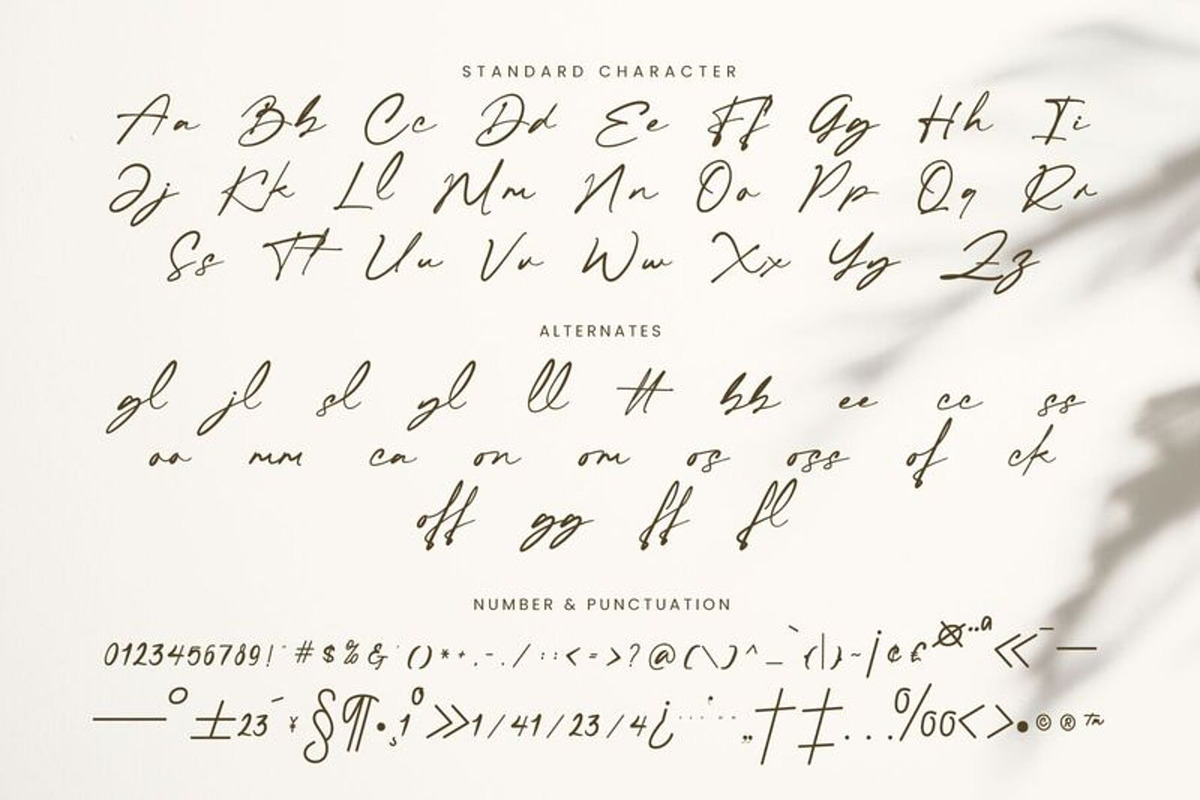 STANDARD CHARACTER
Aa Bb Cc Dd Ee Ff Gg Hh Ii
Jj Kk Ll Mm Nn Oo Pp Qq Rr
Ss Tt Uu Vv Ww Xx Yy Zz
ALTERNATES
gl jl sl yl ll tt bb ee cc ss
oo mm ca on om os oss of ck
off gg ff fl
NUMBER & PUNCTUATION
0123456789!" # $ % & ' () * + , - . / : ; < = > ? @ ( \ ) ^ _ ` { | } ~ ¡ ¢ £ ¤ ¨ ª « ¯ —
— ° ± 23 ´ ¥ § ¶ • ¸ 1 º » 1/41/23/4 ¿ „ † ‡ ... ‰ < > • © ® ™